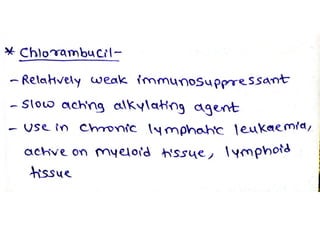 * Chlorambucil-
- Relatively weak immunosuppressant
- Slow acting alkylating agent
- Use in chronic lymphatic leukaemia,
active on myeloid tissue, lymphoid
tissue